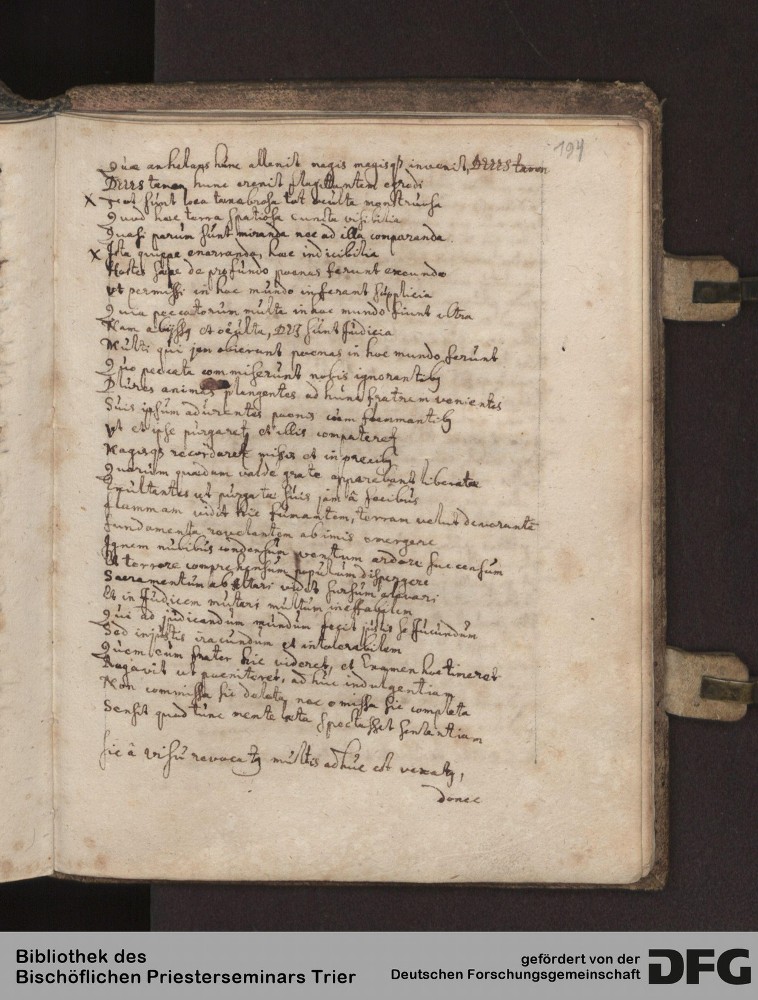 194
Quae anhelans hunc allenit magis magisque invenit, DEUS tamen
DEUS tamen hunc crevit flagitantem
x Tot sunt loca tenebrosa tot occulta monstruosa
Quod haec terra spatiosa cuncta visibilia
Quasi parum sunt miranda nec ad illa comparanda.
x Ista quippe enarranda, haec indicibilia
Hostes saepe de profundo poenas ferunt
Ut permissi in hoc mundo inferant supplicia
Quia peccatorum multa in hoc mundo fiunt ultra
Nam abyssus et occulta, DEI sunt judicia
Multi qui jam obierunt poenas in hoc mundo ferunt
Quo peccata commiserunt nobis ignorantibq
Plures animas plangentes ad hunc fratrem venientes
Suis ipsum adurentes poenis eum
Ut et ipse purgaret, et illis compateret
Magisq recordaret missis et in precibq
Quarum quaedam valde grate apparebant liberatae
Exultantes ut purgatae suis jam â faecibus
Flammam vidit hic fumantem, terram velut devorantē
Fundamenta revelantem ab imis emergere
Ignem nubibus condensum ventum ardore succensum
Et terrore comprehensum populum dispergere
Sacramentum ab altari vidit sursum elevari
Et in Judicem mutari multum ineffabilem
Qui ad judicandum mundum fecit justis se jucundum
Sed injustis iracundum et intolerabilem
Quem cum frater hic videret, et hoc tineret
Rogavit ut poeniteret, adhuc indulgentiam
Non commissa sic deleta, nec omissa sic completa
Sensit quod tunc mente laeta spectasset sententiam
Sic â visu revocatq multis adhuc est vexatq,
donec
Bibliothek des
Bischöflichen Priesterseminars Trier
gefördert von der
Deutschen Forschungsgemeinschaft
DFG